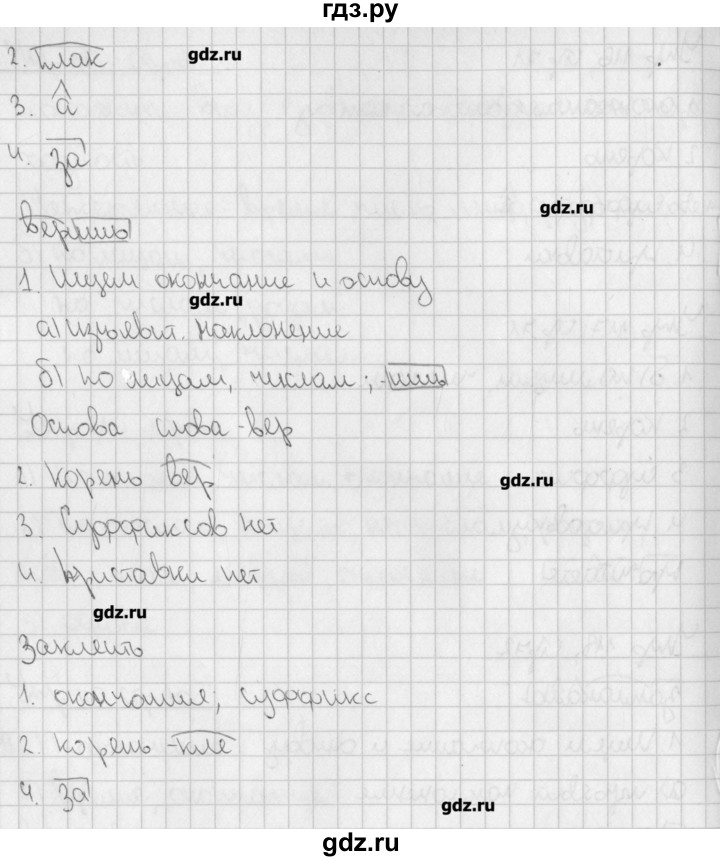 гдз.ру
2. плак gdz.ru
3. а
4. за
gdz.ru
веришь
1. Ищем окончание и основу
gdz.ru
а) изъявит. наклонение
б) по лицам, числам; -ишь
Основа слова -вер
2. Корень вер gdz.ru
3. Суффиксов нет
4. Приставки нет
gdz.ru
Заклеить
1. окончания, суффикс
2. корень -кле
4. за gdz.ru
gdz.ru